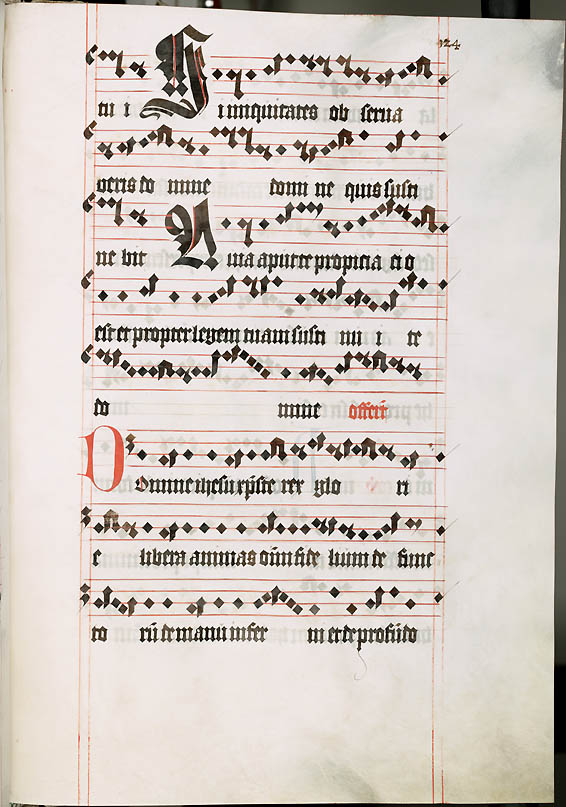 124
tu i Si iniquitates ob serua
ueris do mine domi ne quis susti
ne bit Quia apud te propicia ti o
est et propter legem tuam susti nu i te
do mine offertū
Domine ihesu xp̄ste rex glo ri
e libera animas om̄ fide lium de func
to rū de manu infer ni et de profūdo